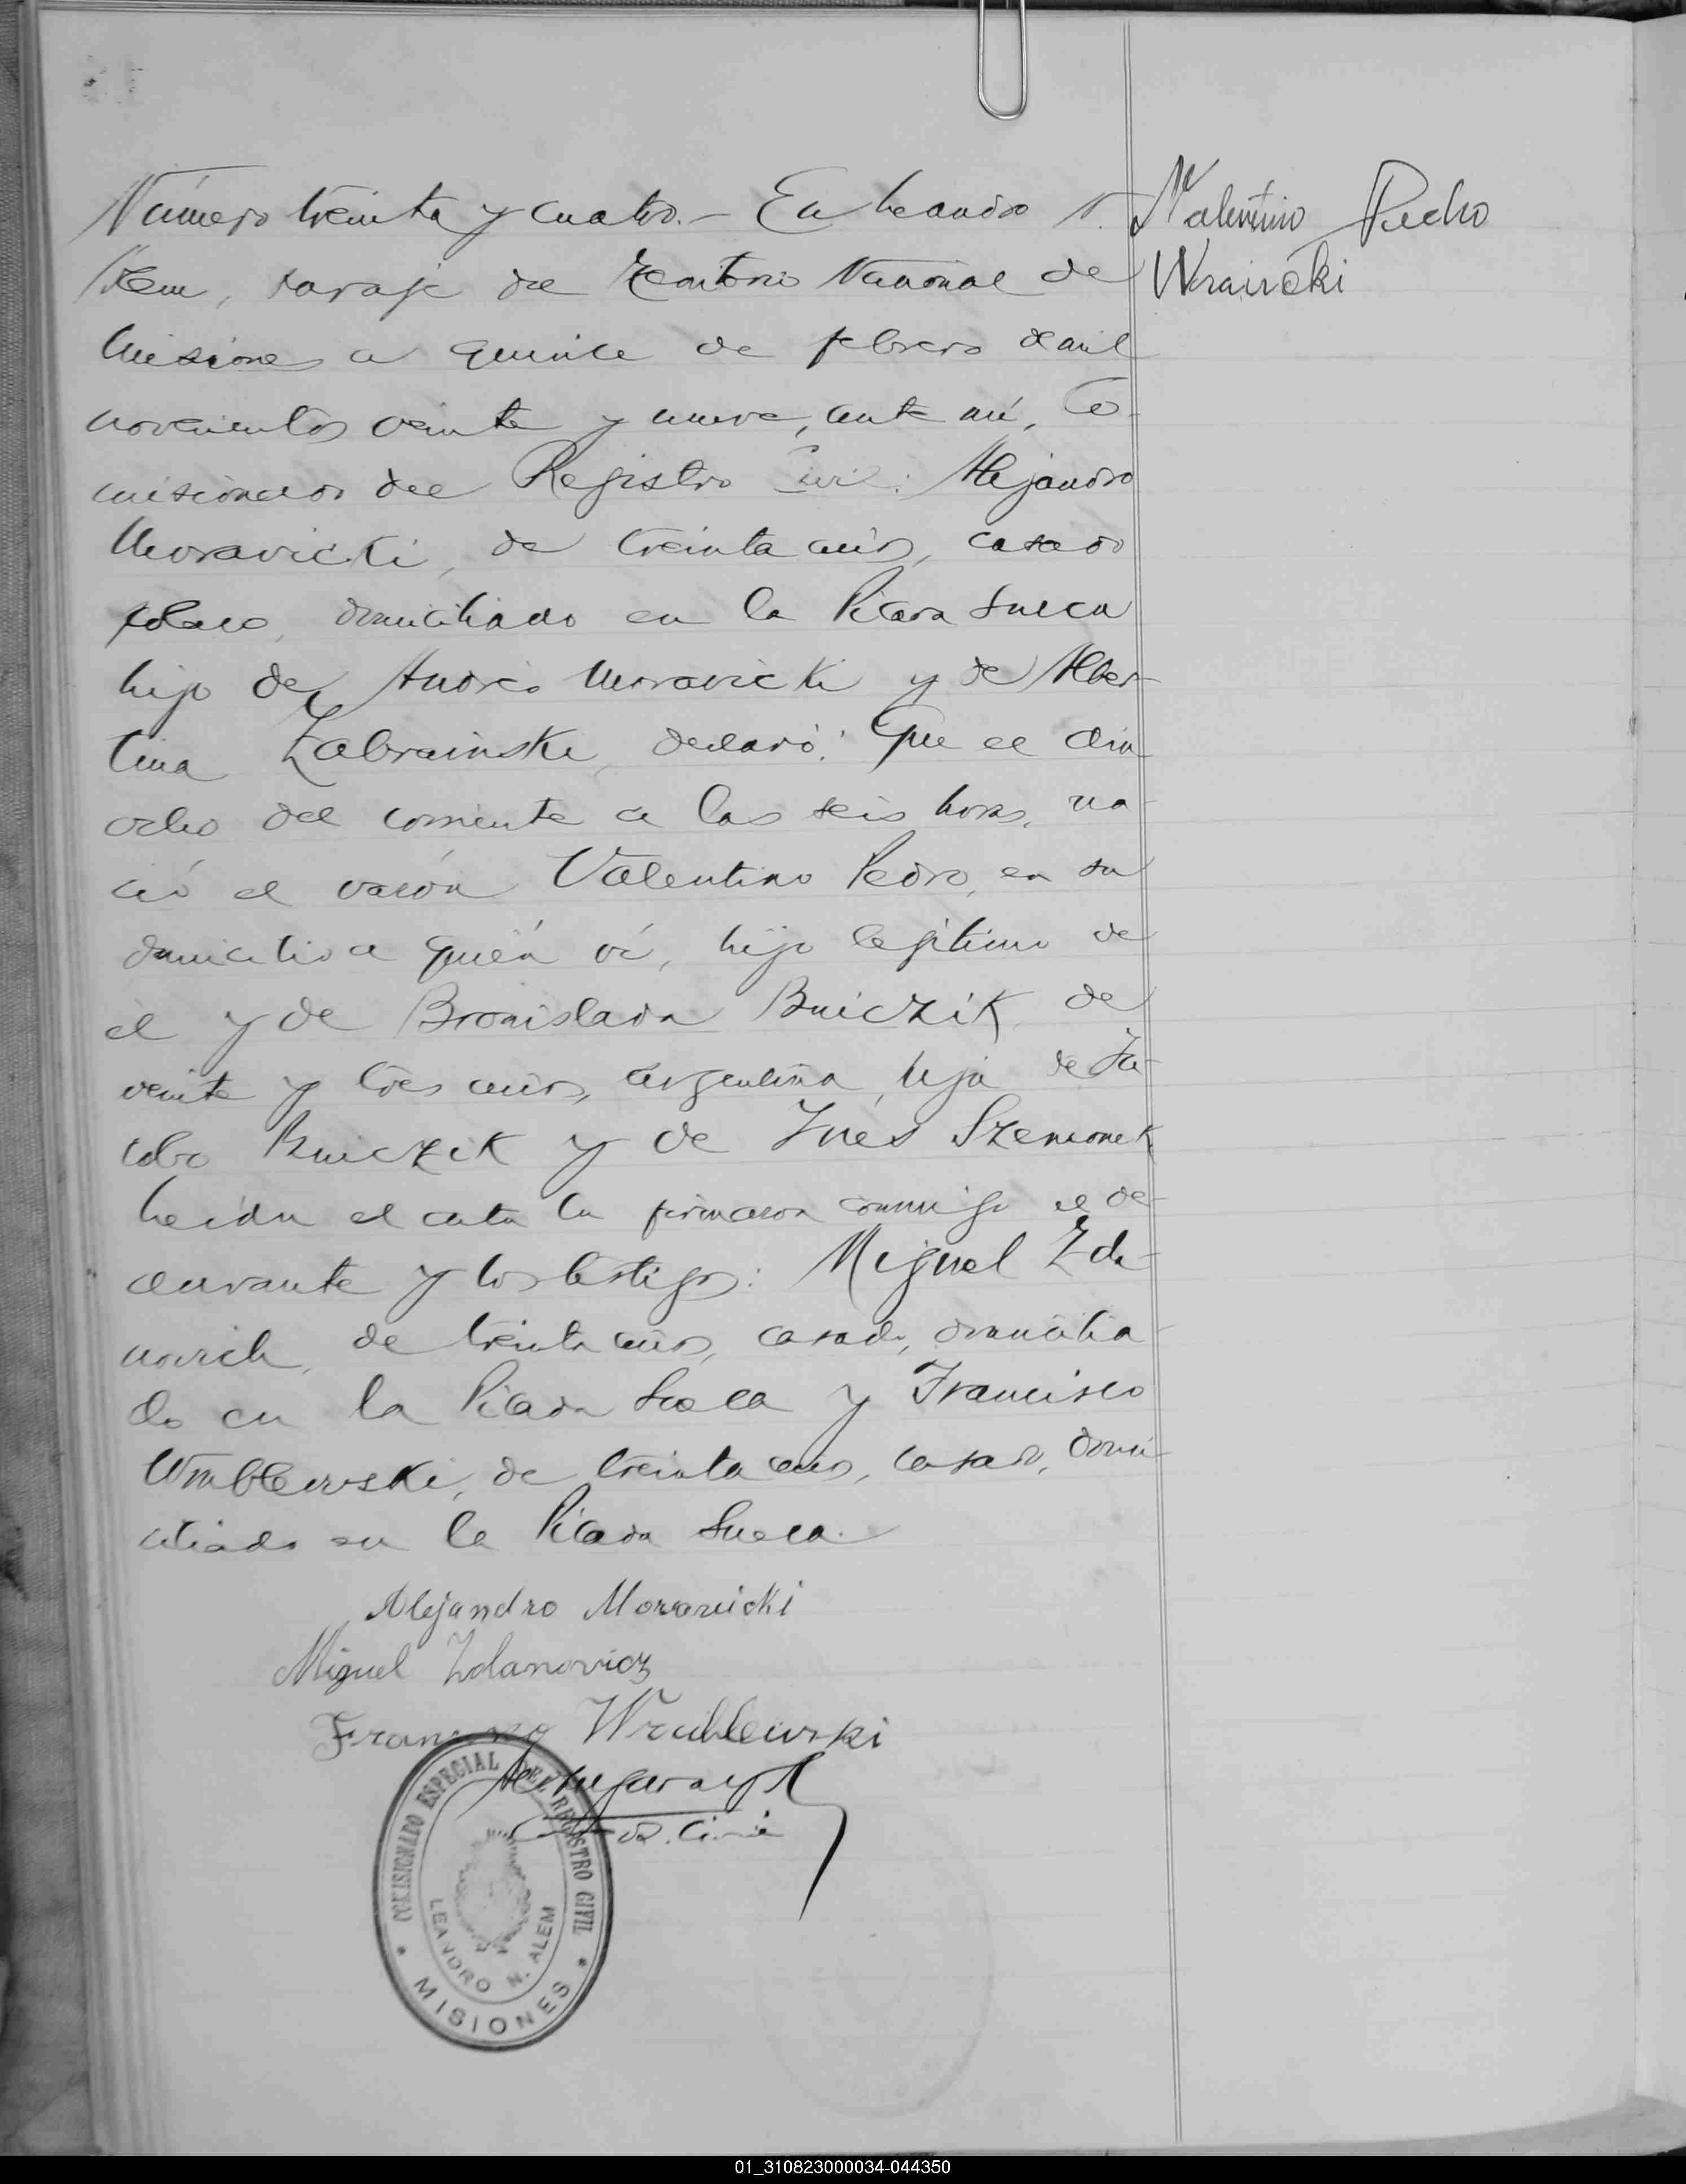 Número treinta y cuatro.- En Leandro N.
Alem, paraje del Territorio Nacional de
Misiones a quince de febrero de mil
novecientos veinte y nueve, ante mí, Co-
misionado del Registro Civil: Alejandro
Moravicki, de treinta años, casado
polaco, domiciliado en la Picada Sueca
hijo de Andrés Moravicki y de Alber-
tina Zabrainski, declaró: Que el día
ocho del corriente a las seis horas, na-
ció el varón Valentino Pedro, en su
domicilio a quién ví, hijo legítimo de
él y de Bronislada Buiczik, de
veinte y tres años, argentina, hija de Ja-
cobo Buiczik y de Inés Szemonek
Leida el acta la firmaron conmigo el de-
clarante y los testigos: Miguel Zda-
novich, de treinta años, casado, domicilia-
do en la Picada Sueca y Francisco
Wrublewski, de treinta años, casado, domi-
ciliado en la Picada Sueca.
Valentino Pedro
Alejandro Moravicki
Miguel Zdanowicz
Francisco Wrublewski
COMISIONADO ESPECIAL DEL REGISTRO CIVIL
LEANDRO N. ALEM
* MISIONES *
01_310823000034-044350